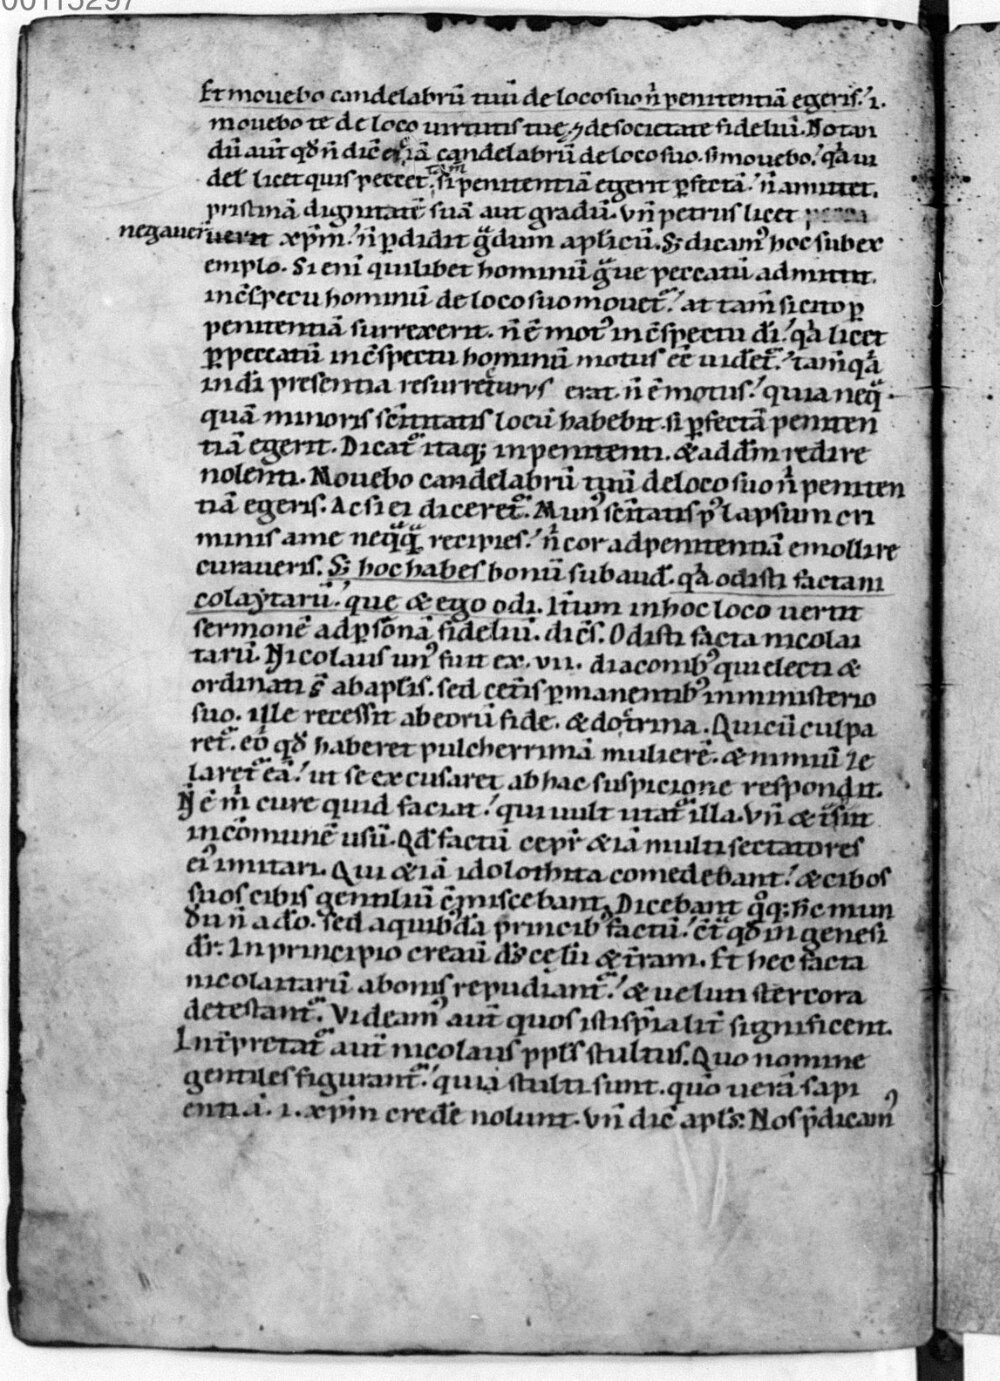 00115297
Et mouebo candelabrū tuū de loco suo n̄ penitentiā egeris.' .i.
mouebo te de loco uirtutis tuę ⁊ de societate fideliū. Notan
dū aūt qđ n̄ dic̄ candelabrū de loco suo. si mouebo.' qͣa ui
del licet quis peccet. si penitentiā egerit ꝑfectā.' n̄ amittet.
pristinā dignitatē suā aut gradū. vn̄ petrus licet
negauerit xp̄m.' n̄ ꝑdidit gͣdum aplicū. Sꝫ dicamꝰ hoc sub ex
emplo. Si eni quilibet hominū gͣue peccatū admittit.
in c̄spectu hominū de loco suo mouet᷑.' at tam̄ si cito ꝑ
penitentiā surrexerit. n̄ ē motꝰ in c̄spectu dī.' qͣa licet
ꝑ peccatū in c̄spectu hominū motus ēē uidet᷑.' tam̄ qͣa
in dī presentia resurrecturus erat n̄ ē motus.' quia neqͣ
quā minoris sc̄titatis locū habebit. si ꝑfectā peniten
tiā egerit. Dicat᷑ itaqꝫ inpenitenti. & ad dm̄ redire
nolenti. Mouebo candelabrū tuū de loco suo n̄ peniten
tiā egeris. Ac si ei diceret᷑. Munꝰ sc̄itatis pꝰ lapsum cri
minis a me neqͣqͣ recipies.' n̄ cor ad penitentiā emollire
curaueris. Sꝫ hoc habes bonū subaud̄. qͣa odisti factam
colaytarū.' que & ego odi. It̄um in hoc loco uertit
sermonē ad ꝑsonā fideliū. dic̄s. Odisti facta nicolai
tarū. Nicolaus unꝰ fuit ex .vii. diaconibꝰ qui electi &
ordinati s̄ ab aplis. sed cet̄is ꝑmanentibꝰ in ministerio
suo. ille recessit ab eorū fide. & doctrina. Qui cū culpa
ret᷑. eo qđ haberet pulcherrimā mulierē. & nimiū ze
laret᷑ eā.' ut se excusaret ab hac suspicione respondit.
N̄ ē m̄ cure quid faciat.' qui uult utat᷑ illa. vn̄ &
in com̄unē usū. Qđ factū cepr̄ & iā multi sectatores
eiꝰ imitari. Qui & iā idolothita comedebant.' & cibos
suos cibis gentiliū c̄miscebant. Dicebant qͦqꝫ hc̄ mun
dū n̄ a dō. sed a quibꝰdā principibꝰ factū.' ct̄ qđ in genesi
dr̄. In principio creauī ds̄ cęlū & t̄ram. Et hec facta
nicolaitarū a bonis repudiant᷑.' & uelut stercora
detestant᷑. Videamꝰ aut̄ quos isti sp̄ialit̄ significent.
Int̄pretat᷑ aut̄ nicolaus ppl̄s stultus. Quo nomine
gentiles figurant᷑.' quia stulti sunt. quo uerā sapi
entiā .i. xp̄m crede nolunt. vn̄ dic̄ apl̄s: Nos p̄dicamꝰ